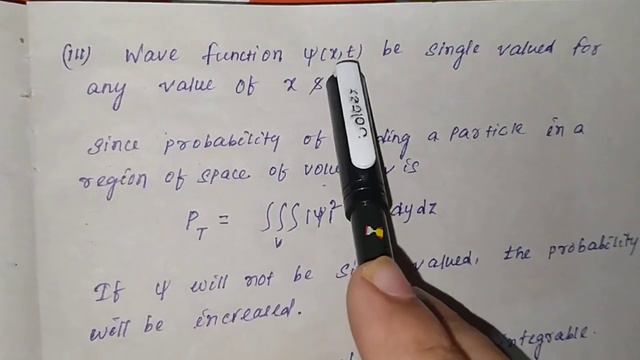 (iii) Wave function ψ(x,t) be single valued for
any value of x &
Since probability of a particle in a
region of space of is
P_T = ∫∫∫_V |ψ|² dydz
If ψ will not be valued, the probability
will be increased.
integrable.